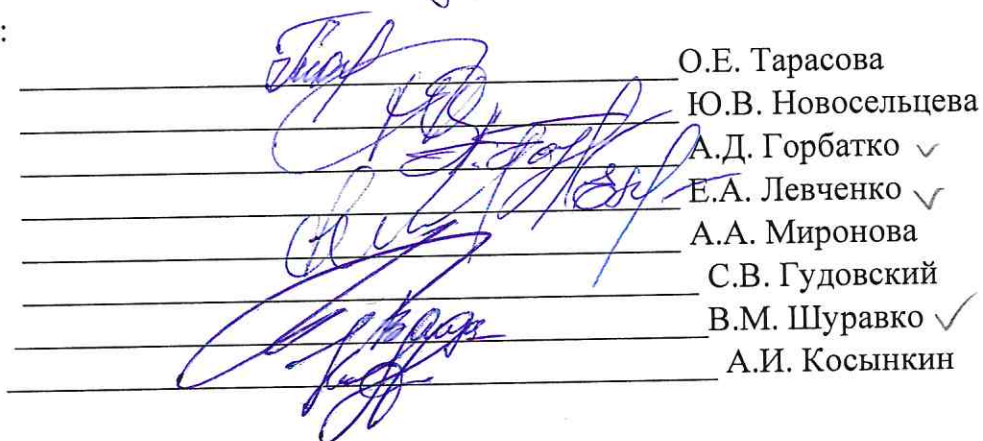 :
О.Е. Тарасова
Ю.В. Новосельцева
А.Д. Горбатко
Е.А. Левченко
А.А. Миронова
С.В. Гудовский
В.М. Шуравко
А.И. Косынкин